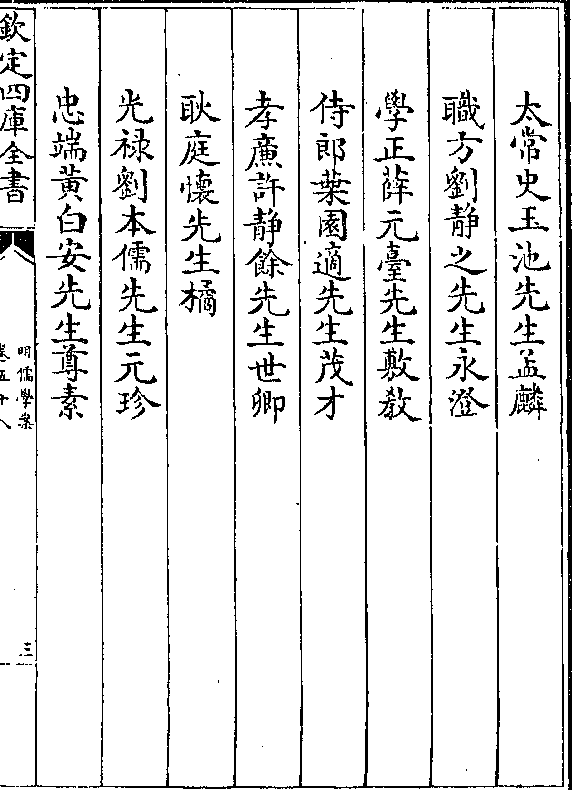 太常史玉池先生孟麟
職方劉静之先生永澄
學正薛元臺先生敷教
侍郎葉園適先生茂才
孝亷許静餘先生世卿
耿庭懷先生橘
光禄劉本儒先生元珍
忠端黄白安先生尊素
欽定四庫全書
明儒學案
卷五十八
三